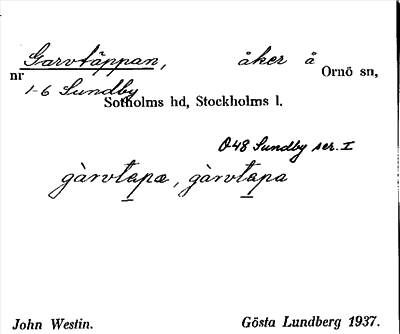 Garvtäppan, åker å Ornö sn,
nr 1-6 Sundby
Sotholms hd, Stockholms l.
O48 Sundby ser. I
gàrvtapæ, gàrvtapa
John Westin. Gösta Lundberg 1937.